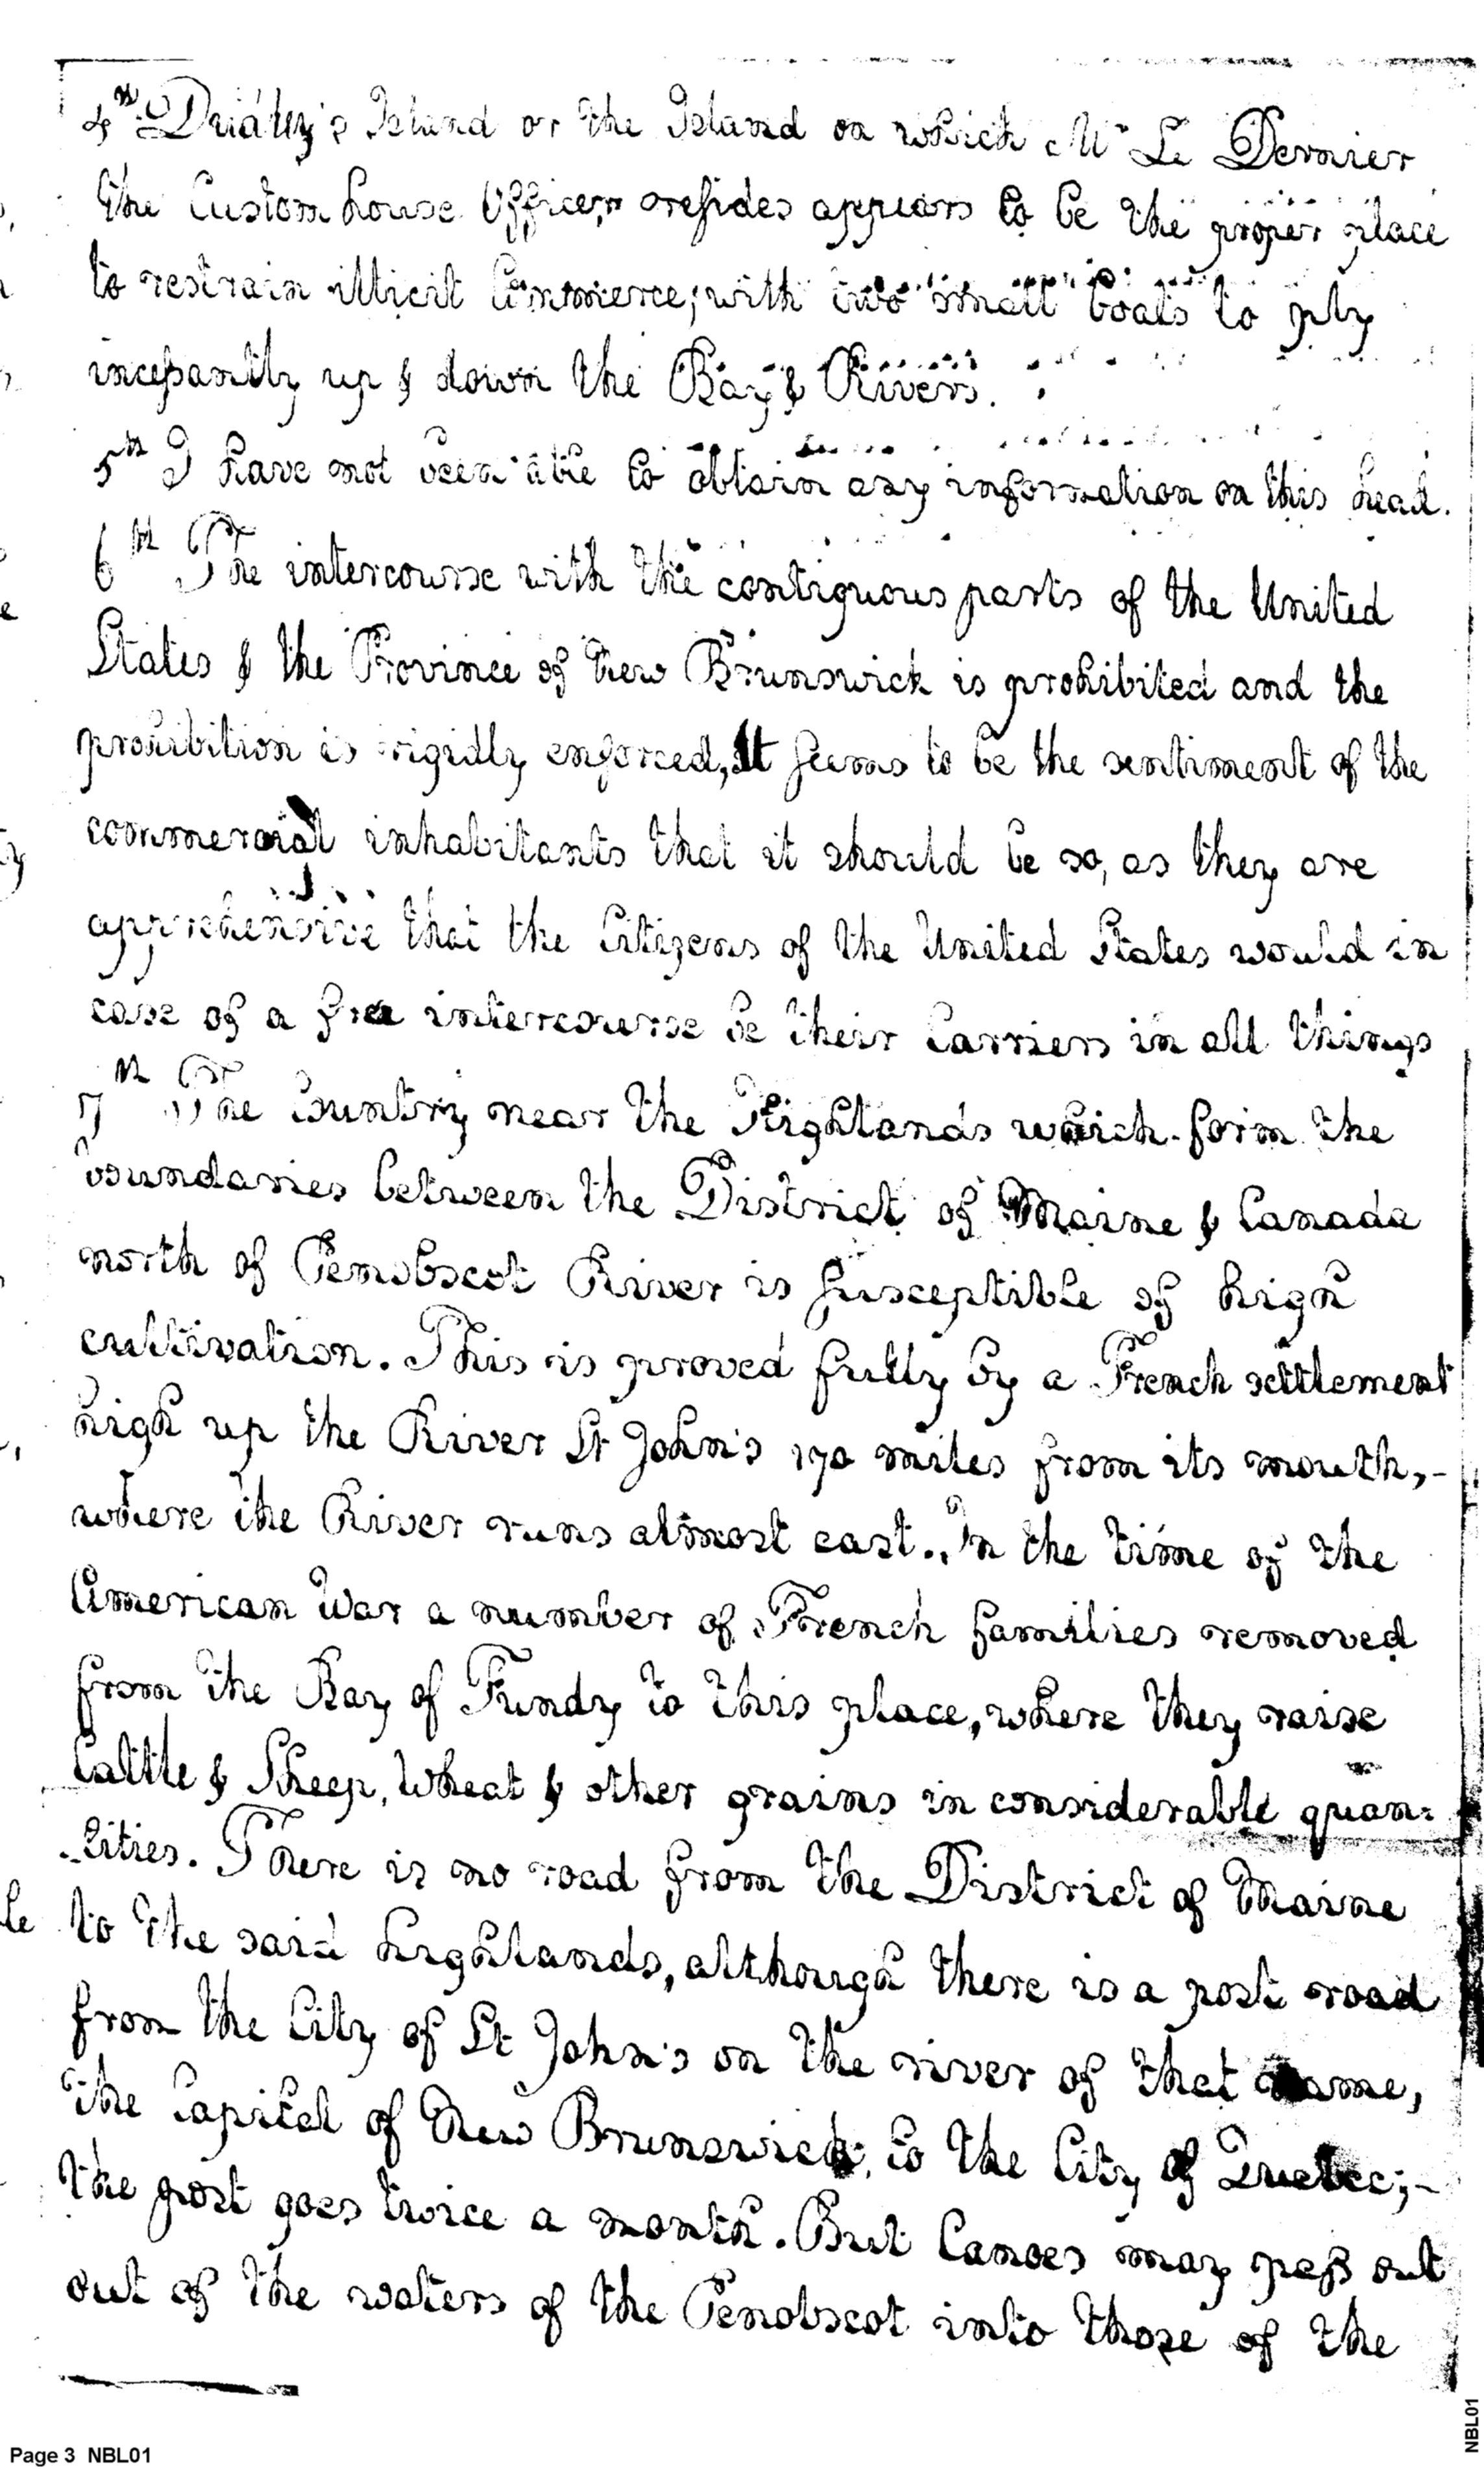 4th Dudley's Island or the Island on which Mr Le Dernier
the Custom house Officer resides appears to be the proper place
to restrain illicit Commerce; with two small boats to ply
incessantly up & down the Bay & Rivers.
5th I have not been able to obtain any information on this head.
6th The intercourse with the contiguous parts of the United
States & the Province of New Brunswick is prohibited and the
prohibition is rigidly enforced, It seems to be the sentiment of the
commercial inhabitants that it should be so, as they are
apprehensive that the Citizens of the United States would in
case of a free intercourse be their Carriers in all things
7th The Country near the Highlands which form the
boundaries between the District of Maine & Canada
north of Penobscot River is susceptible of high
cultivation. This is proved fully by a French settlement
high up the River St John's 170 miles from its mouth,-
where the River runs almost east. In the time of the
American War a number of French families removed
from the Bay of Fundy to this place, where they raise
Cattle & Sheep, Wheat & other grains in considerable quan=
-tities. There is no road from the District of Maine
to the said highlands, although there is a post road
from the City of St John's on the river of that name,
the Capital of New Brunswick, to the City of Quebec;-
the post goes twice a month. But Canoes may pass out
out of the waters of the Penobscot into those of the
Page 3 NBL01
NBL01